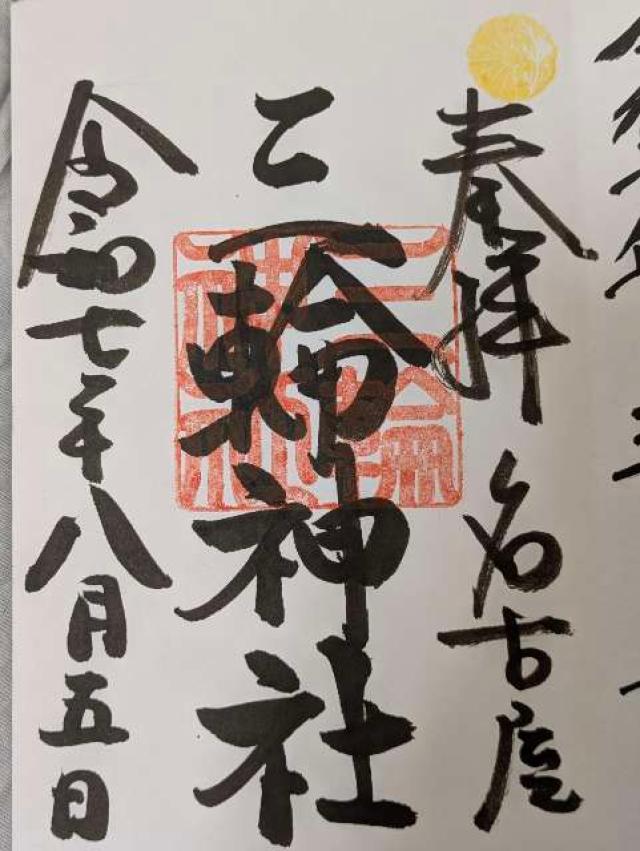 奉拝 名古屋
三輪神社
令和七年八月五日
三輪神社